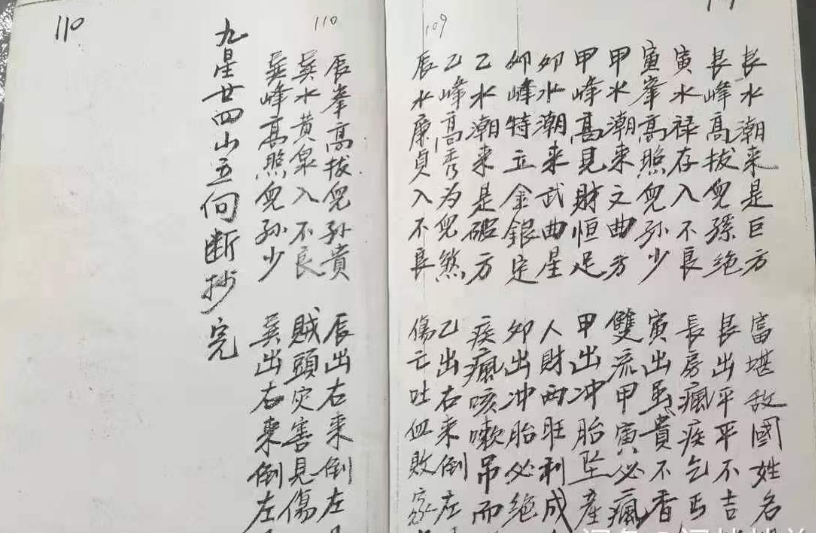 艮水潮来是巨方 富堪敌國姓名
艮峰高拔兒孫绝 艮出平平不吉
寅水禄存入不良 長房瘋疾乞丐
寅峯高照兒孙少 寅出虽貴不香
甲水潮来文曲方 雙流甲寅必瘋
甲峰高見財恒足 甲出冲胎坠産
卯水潮来武曲星 人財両旺利成
卯峰特立金銀定 卯出冲胎必绝
乙水潮来是破方 疾瘋咳嗽吊而
乙峰高秀为兒煞 乙出右来倒左
辰水廉貞入不良 傷亡吐血敗家
109
110
辰峯高拔兒孙貴 辰出右来倒左
巽水黄泉入不良 賊頭灾害見傷
巽峰高照兒孙少 巽出右来倒左
九星廿四山五向断抄完
110